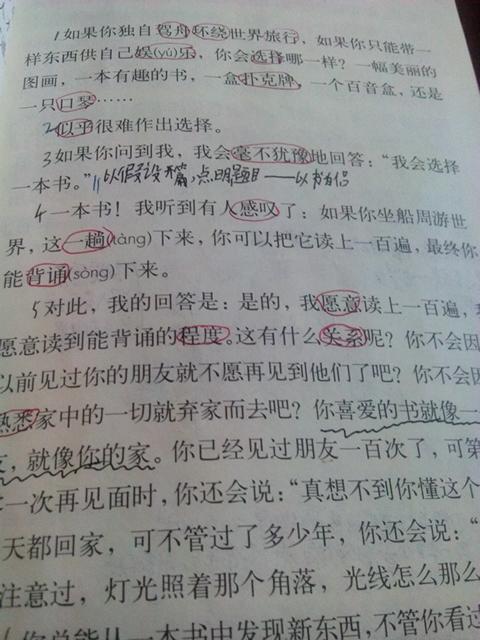 1如果你独自驾舟环绕世界旅行，如果你只能带一
样东西供自己娱(yú)乐，你会选择哪一样？一幅美丽的
图画，一本有趣的书，一盒扑克牌，一个百音盒，还是
一只口琴……
2似乎很难作出选择。
3如果你问到我，我会毫不犹豫地回答：“我会选择
一本书。”以假设开篇，点明题目——以书为侣
4一本书！我听到有人感叹了：如果你坐船周游世
界，这一趟(tàng)下来，你可以把它读上一百遍，最终你
能背诵(sòng)下来。
5对此，我的回答是：是的，我愿意读上一百遍，
愿意读到能背诵的程度。这有什么关系呢？你不会因
以前见过你的朋友就不愿再见到他们了吧？你不会因
熟悉家中的一切就弃家而去吧？你喜爱的书就像一
友，就像你的家。你已经见过朋友一百次了，可第
一次再见面时，你还会说：“真想不到你懂这个
天都回家，可不管过了多少年，你还会说：“
注意过，灯光照着那个角落，光线怎么那么
你总能从一本书中发现新东西，不管你看过